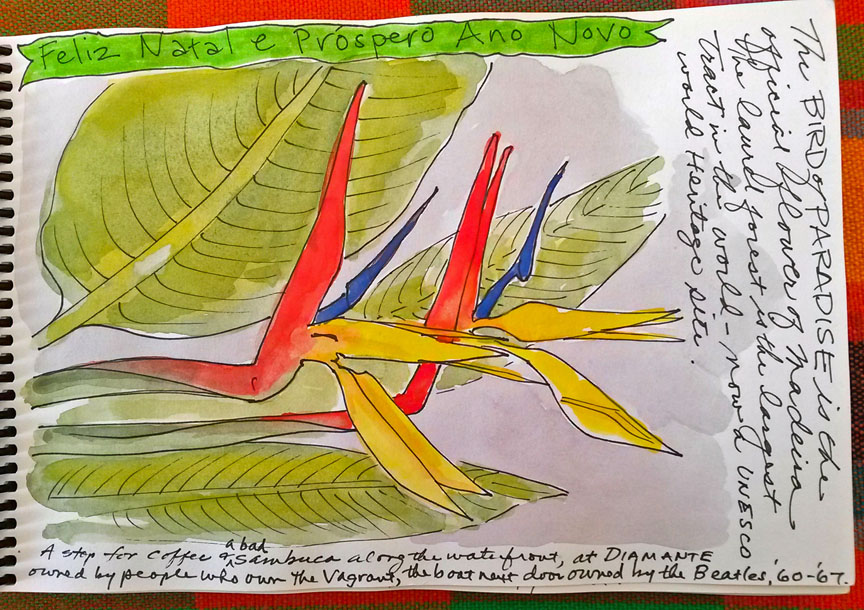 Feliz Natal e Próspero Ano Novo
The BIRD of PARADISE is the
official flower of Madeira
The laurel forest is the largest
tract in the world - now a UNESCO
world Heritage site.
A stop for coffee & a bad Sambuca along the waterfront, at DIAMANTE
owned by people who own The Vagrant, the boat next door owned by the Beatles, '60-'67.